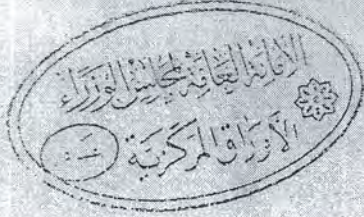 الأمانة العامة لمجلس الوزراء
الأوراق المركزية
نسخة